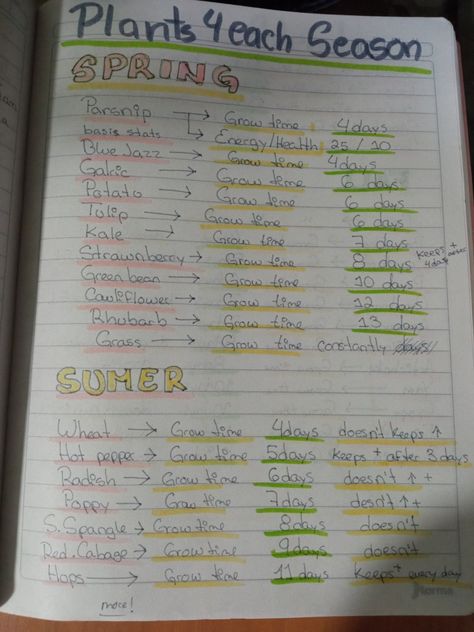 Plants 4 each Season
SPRING
Parsnip → Grow time 4 days
basis stats → Energy/Health 25 / 10
Blue Jazz → Grow time 4 days
Galric → Grow time 6 days
Potato → Grow time 6 days
Tolip → Grow time 6 days
Kale → Grow time 7 days
Strawnberry → Grow time 8 days keeps + after 4 days
Green bean → Grow time 10 days
Cauliflower → Grow time 12 days
Rhubarb → Grow time 13 days
Grass → Grow time constantly days
SUMER
Wheat → Grow time 4 days doesn't keeps ↑
Hot pepper → Grow time 5 days keeps + after 3 days
Radish → Grow time 6 days doesn't ↑ +
Poppy → Grow time 7 days desn't ↑ +
S. Spangle → Grow time 8 days doesn't
Red. Cabage → Grow time 9 days doesn't
Hops → Grow time 11 days keeps + every day
more!
Norma